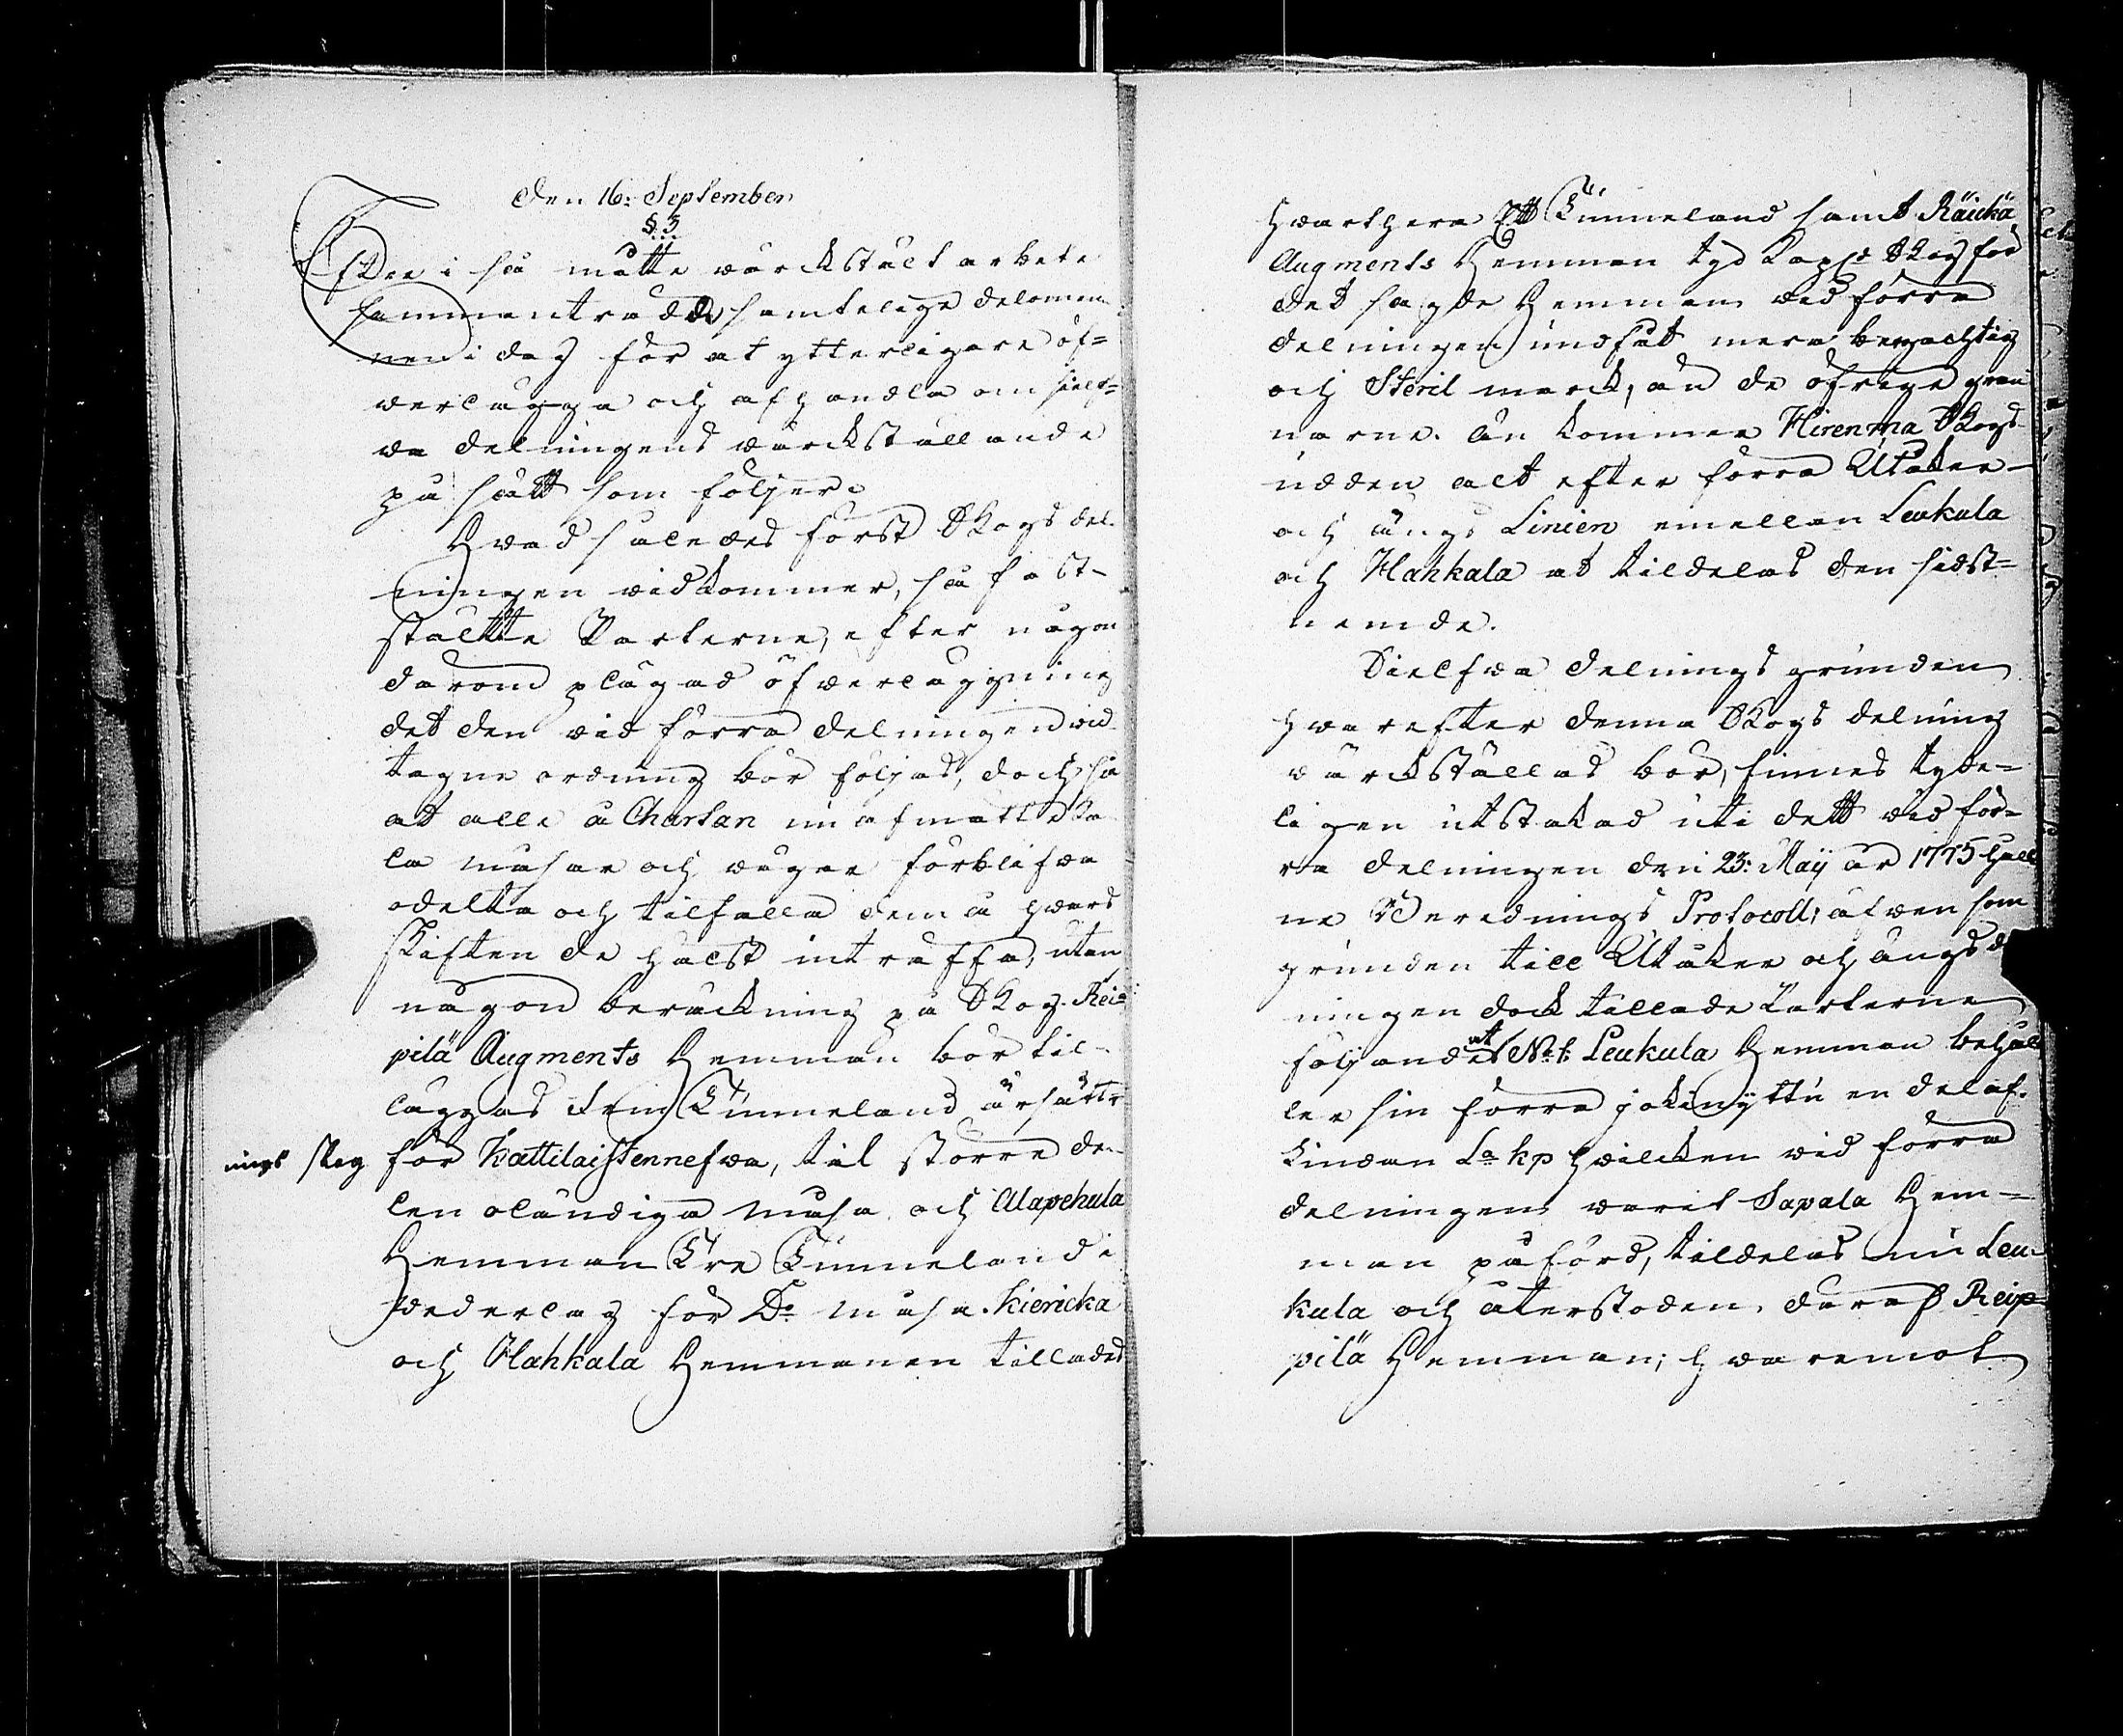 Den 16: September
§. 3
Efter i så måtte värckstält arbete
sammanträdde samtelige delomän
nen i dag för at ytterligare öf=
verlägga och afhandla om sielf=
va delningens värckställande
på sätt som följer.
Hvad således först Skogs del
ningen vidkommer, så fast-
stälte Parterne, efter någon
därom plägad öfverläggning
det den vid förra delningen vid
tagne ordning bör följas, doch så
at alle å Chartan nu afmätte Ka
la måsar och vägar förblifva
odelta och tilfalla dem å hvars
skiften de hälst inträffa, utan
någon beräckning på Skog. Rei=
pilä Augments Hemman bör til-
läggas fem Tunneland ärsätt=
nings skog för Kattilaistennefva, til större de-
len oländiga måsa och Alapekula
Hemman Tre Tunneland i
vederlag för D:o måsa. Kiericka
och Hahkala Hemmanen tillades
hvarthera Ett Tunneland samt Räickä
Augments Hemman tyd Kapp:d Skog för
det sagde Hemman vid förra
delningen undfåt mera bergachtig
och Steril marck, än de öfrige gran
narne. Än kommer Hirenma Skogs
udden alt efter förra Utåker
och ängs Linien emellan Leukula
och Hahkala at tildelas den sidst=
nemde.
Sielfva delnings grunden
hvarefter denna Skogs delning
värckställas bör, finnes tyde=
ligen utstakad uti dett vid för=
ra delningen den 23: Maij år 1775 håll
ne Utrednings Protocoll; äfven som
grunden till Utåker och ängs d
ningen dock tillade Parterne
följande at N:o 1: Leukula Hemman behål
ler sin förra jokinyttu en del af
Lindan L:a kp hvilcken vid förra
delningen varit Sapala Hem=
man påförd, tildelas nu Leu=
kula och återstoden däraf Reip=
pilä Hemman; hvaremot